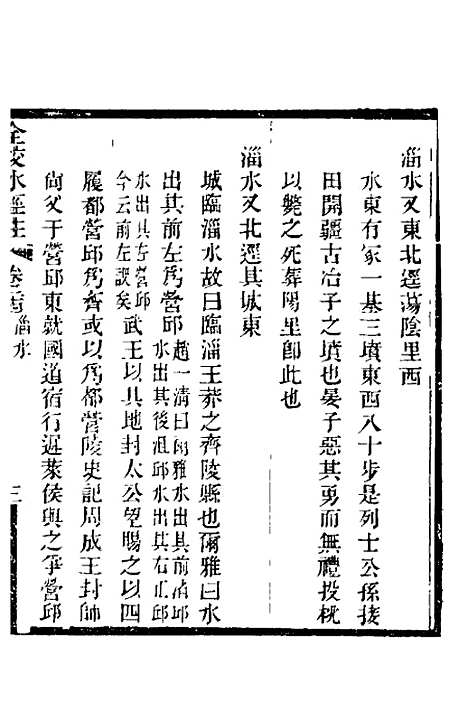 淄水又東北逕蕩陰里西
水東有冢一基三墳東西八十步是列士公孫接
田開疆古冶子之墳也晏子惡其勇而無禮投桃
以斃之死葬陽里即此也
淄水又北逕其城東
城臨淄水故曰臨淄王莽之齊陵縣也爾雅曰水
出其前左爲營邱
趙一清曰爾雅水出其前渻邱
水出其後沮邱水出其右正邱
水出其左營邱
今云前左誤矣
武王以其地封太公望賜之以四
履都營邱爲齊或以爲都營陵史記周成王封師
尙父于營邱東就國道宿行遲萊侯與之爭營邱
全校水經注
卷二十六
淄水
三